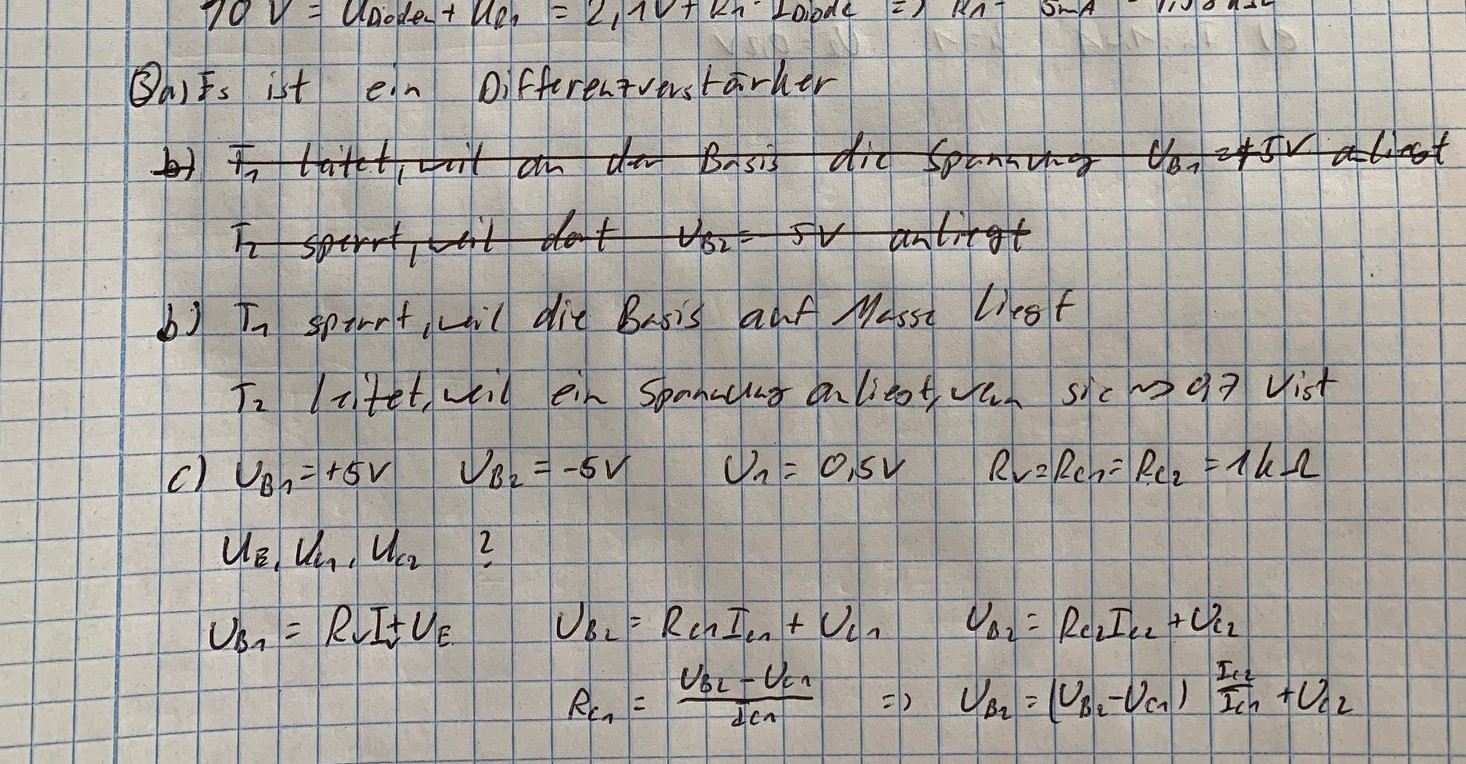 10 V = U_Dioden + U_R1 = 2,1V + R1 · I_Diode => R1 = 5mA
③a) Es ist ein Differenzverstärker
b) T1 leitet, weil an der Basis die Spannung U_B1 = +5V anliegt
T2 sperrt, weil dort U_B2 = -5V anliegt
b) T1 sperrt, weil die Basis auf Masse liegt
T2 leitet, weil ein Spannung anliegt, wenn sie ~> 0,7 V ist
c) U_B1 = +5V U_B2 = -5V U_1 = 0,5V R_V = R_C1 = R_C2 = 1kΩ
U_E, U_C1, U_C2 ?
U_B1 = R_V I_V + U_E U_B2 = R_C1 I_C1 + U_C1 U_B2 = R_C2 I_C2 + U_C2
R_C1 = (U_B2 - U_C1) / I_C1 => U_B2 = (U_B2 - U_C1) I_C2 / I_C1 + U_C2